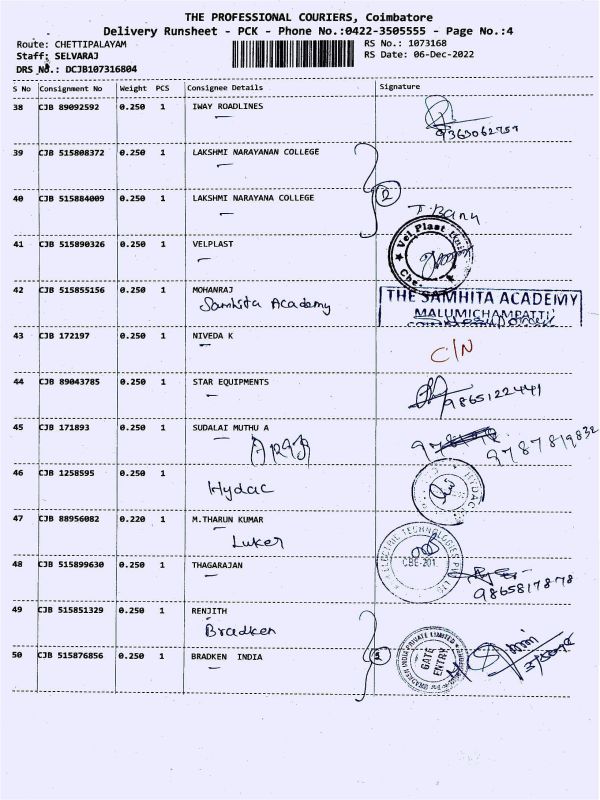 THE PROFESSIONAL COURIERS, Coimbatore
Delivery Runsheet - PCK - Phone No.:0422-3505555 - Page No.:4
Route: CHETTIPALAYAM RS No.: 1073168
Staff: SELVARAJ RS Date: 06-Dec-2022
DRS No.: DCJB107316804
S No Consignment No Weight PCS Consignee Details Signature
38 CJB 89092592 0.250 1 IWAY ROADLINES
9363062757
39 CJB 515808372 0.250 1 LAKSHMI NARAYANAN COLLEGE
2
40 CJB 515884009 0.250 1 LAKSHMI NARAYANA COLLEGE
41 CJB 515890326 0.250 1 VELPLAST
Vel Plast
42 CJB 515855156 0.250 1 MOHANRAJ THE SAMHITA ACADEMY
Samhita Academy MALUMICHAMPATTI
43 CJB 172197 0.250 1 NIVEDA K
C/N
44 CJB 89043785 0.250 1 STAR EQUIPMENTS
9865122441
45 CJB 171893 0.250 1 SUDALAI MUTHU A
9787819832
46 CJB 1258595 0.250 1
Hydac HYDAC
47 CJB 88956082 0.220 1 M.THARUN KUMAR
Luker
ELECTRIC TECHNOLOGIES
48 CJB 515899630 0.250 1 THAGARAJAN CBE-201
9865817878
49 CJB 515851329 0.250 1 RENJITH
Bradken
50 CJB 515876856 0.250 1 BRADKEN INDIA
BRADKEN INDIA PRIVATE LIMITED
GATE
ENTRY